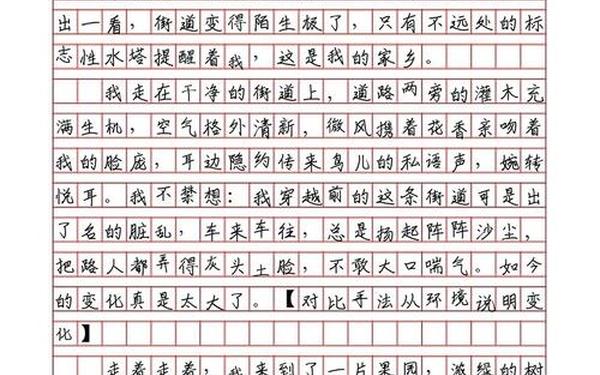 出一看，街道变得陌生极了，只有不远处的标
志性水塔提醒着我，这是我的家乡。
我走在干净的街道上，道路两旁的灌木充
满生机，空气格外清新，微风携着花香亲吻着
我的脸庞，耳边隐约传来鸟儿的私语声，婉转
悦耳。我不禁想：我穿越前的这条街道可是出
了名的脏乱，车来车往，总是扬起阵阵沙尘，
把路人都弄得灰头土脸，不敢大口喘气。如今
的变化真是太大了。【对比手法从环境说明变
化】
走着走着，我来到了一片果园，浓绿的树